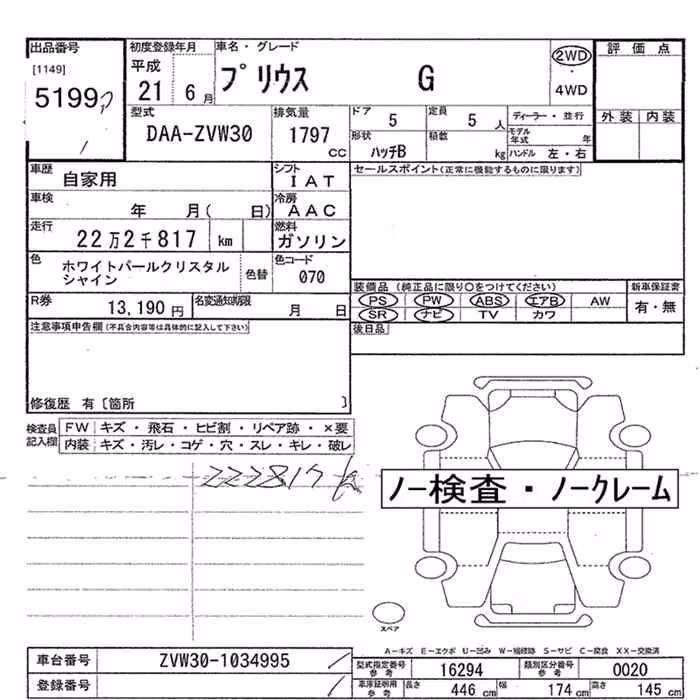 出品番号
[1149]
5199
初度登録年月
平成
21 6月
車名・グレード
プリウス G
2WD
・
4WD
評価点
外装 内装
型式
DAA-ZVW30
排気量
1797
CC
ドア
5
定員
5 人
ディーラー・並行
モデル
年式 年
形状
ハッチB
積載
kg
ハンドル 左・右
車歴
自家用
シフト
IAT
セールスポイント(正常に機能するものに限ります)
車検
年 月( 日)
冷房
AAC
走行
22万2千817 km
燃料
ガソリン
色
ホワイトパールクリスタル
シャイン
色替
色コード
070
装備品 (純正品に限り○をつけてください)
新車保証書
PS PW ABS エアB AW
SR ナビ TV カワ
有・無
R券
13,190 円
名変通知期限
月 日
後日品
注意事項申告欄(不具合内容等は具体的に記入して下さい)
修復歴 有〔箇所 〕
検査員
記入欄
FW キズ・飛石・ヒビ割・リペア跡・×要
内装 キズ・汚レ・コゲ・穴・スレ・キレ・破レ
222817k
ノー検査・ノークレーム
スペア
A-キズ E-エクボ U-凹み W-補修跡 S-サビ C-腐食 XX-交換済
車台番号
ZVW30-1034995
登録番号
型式指定番号
参考
16294
類別区分番号
参考
0020
車庫証明用
参考
長さ
446 cm
幅
174 cm
高さ
145 cm